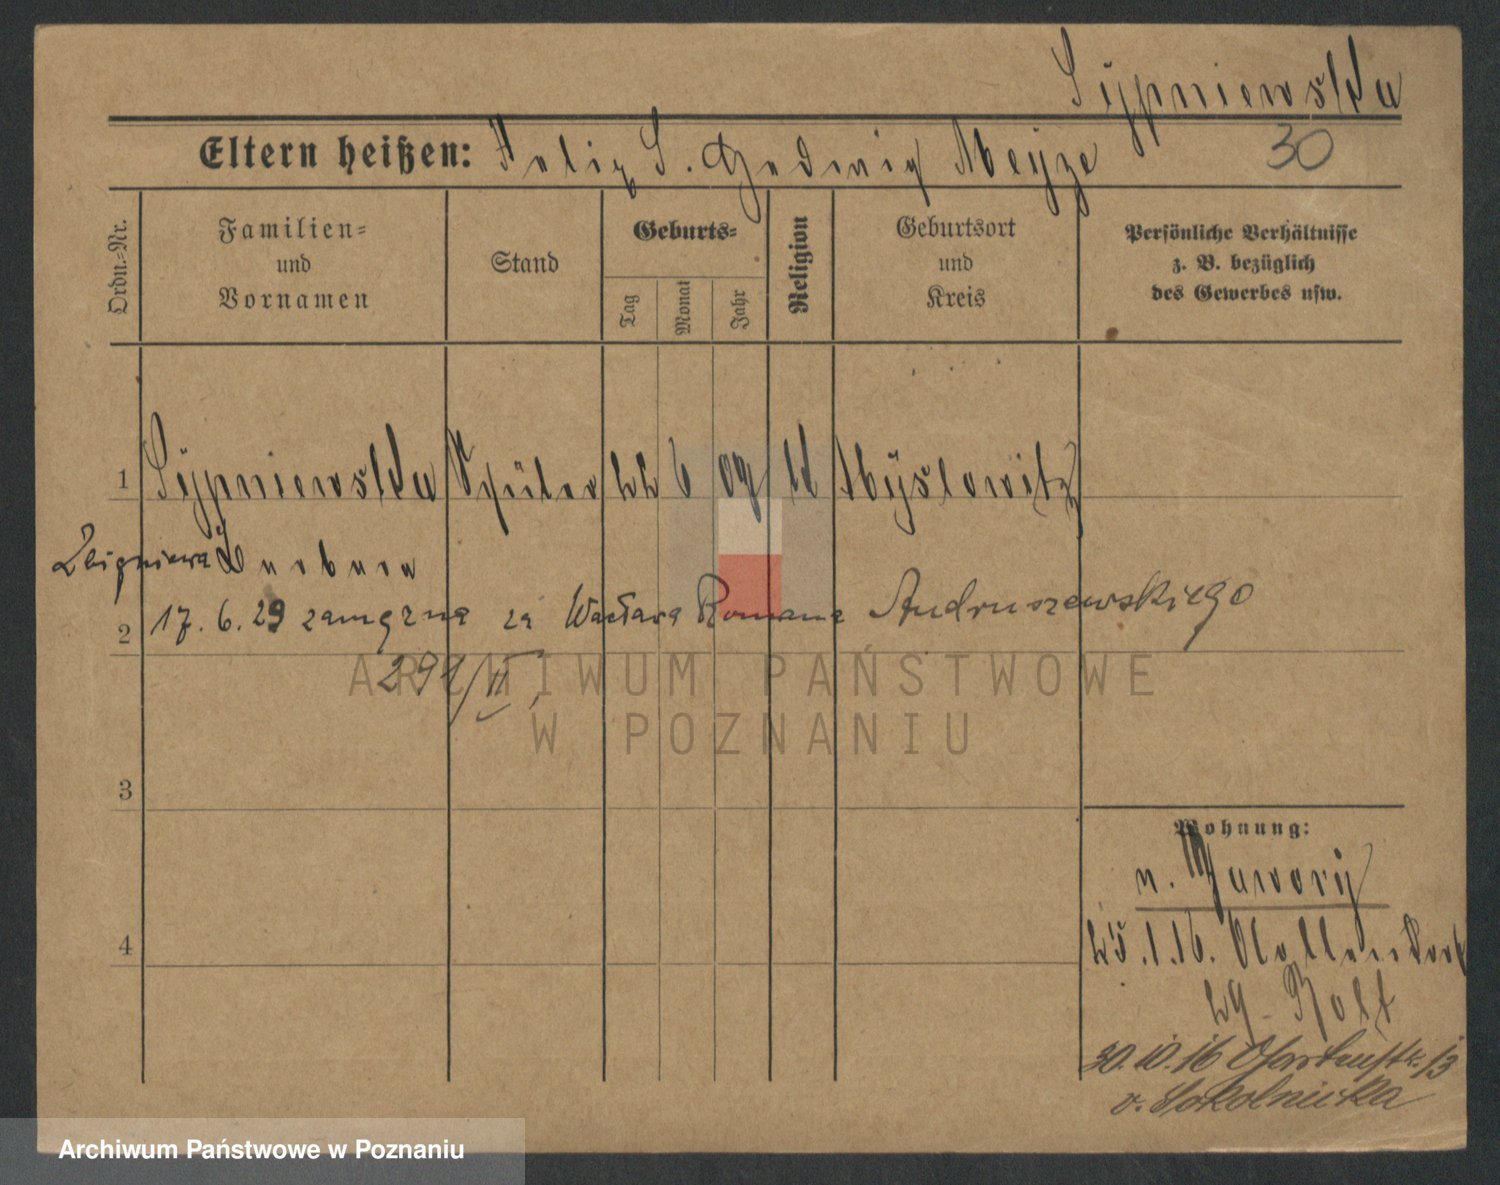 Sypniewska
Eltern heißen: Felix S. Hedwig Meyze
30
Ordn.=Nr.
Familien=
und
Vornamen
Stand
Geburts=
Tag
Monat
Jahr
Religion
Geburtsort
und
Kreis
Persönliche Verhältnisse
z. B. bezüglich
des Gewerbes usw.
1 Sypniewska Schüler 22 6 09 K Myslowitz
Zbigniewa Barbara
2 17. 6. 29 zamężna za Wacława Romana Andruszewskiego
291/II
3
4
Wohnung:
n. Jawory
25.1.16.
29
30.10.16 Gartenstr. 13
v. Sokolnicka
ARCHIWUM PAŃSTWOWE
W POZNANIU
Archiwum Państwowe w Poznaniu